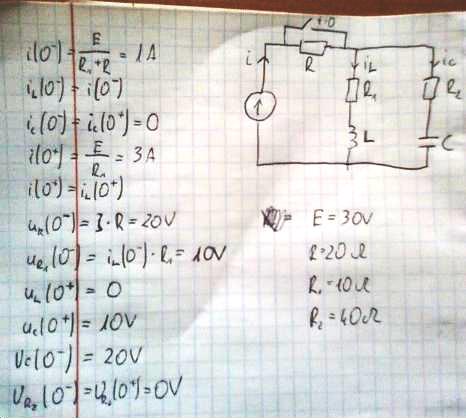 i(0⁻) = E/(R₁+R) = 1A
i_L(0⁻) = i(0⁻)
i_c(0⁻) = i_c(0⁺) = 0
i(0⁺) = E/R₁ = 3A
i(0⁺) = i_L(0⁺)
u_R(0⁻) = 3·R = 20V
u_R₁(0⁻) = i_L(0⁻)·R₁ = 10V
u_L(0⁺) = 0
u_c(0⁺) = 10V
U_c(0⁻) = 20V
U_R₂(0⁻) = U_R₂(0⁺) = 0V
t=0
i
R
i_L
i_c
R₁
R₂
L
C
E = 30V
R = 20Ω
R₁ = 10Ω
R₂ = 40Ω